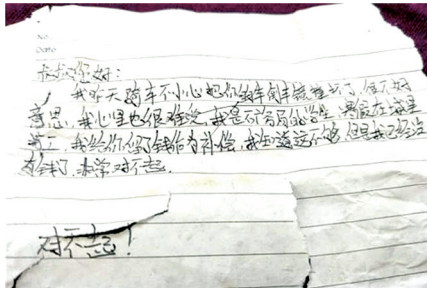 No.
Date
叔叔您好:
我昨天骑车不小心把你的车倒车镜碰坏了,很不好
意思,我心里也很难受,我是一名高中的学生,寒假在这里
打工,我给你们留了钱作为补偿,我知道这不够,但是我已经没
有钱了,非常对不起。
对不起!